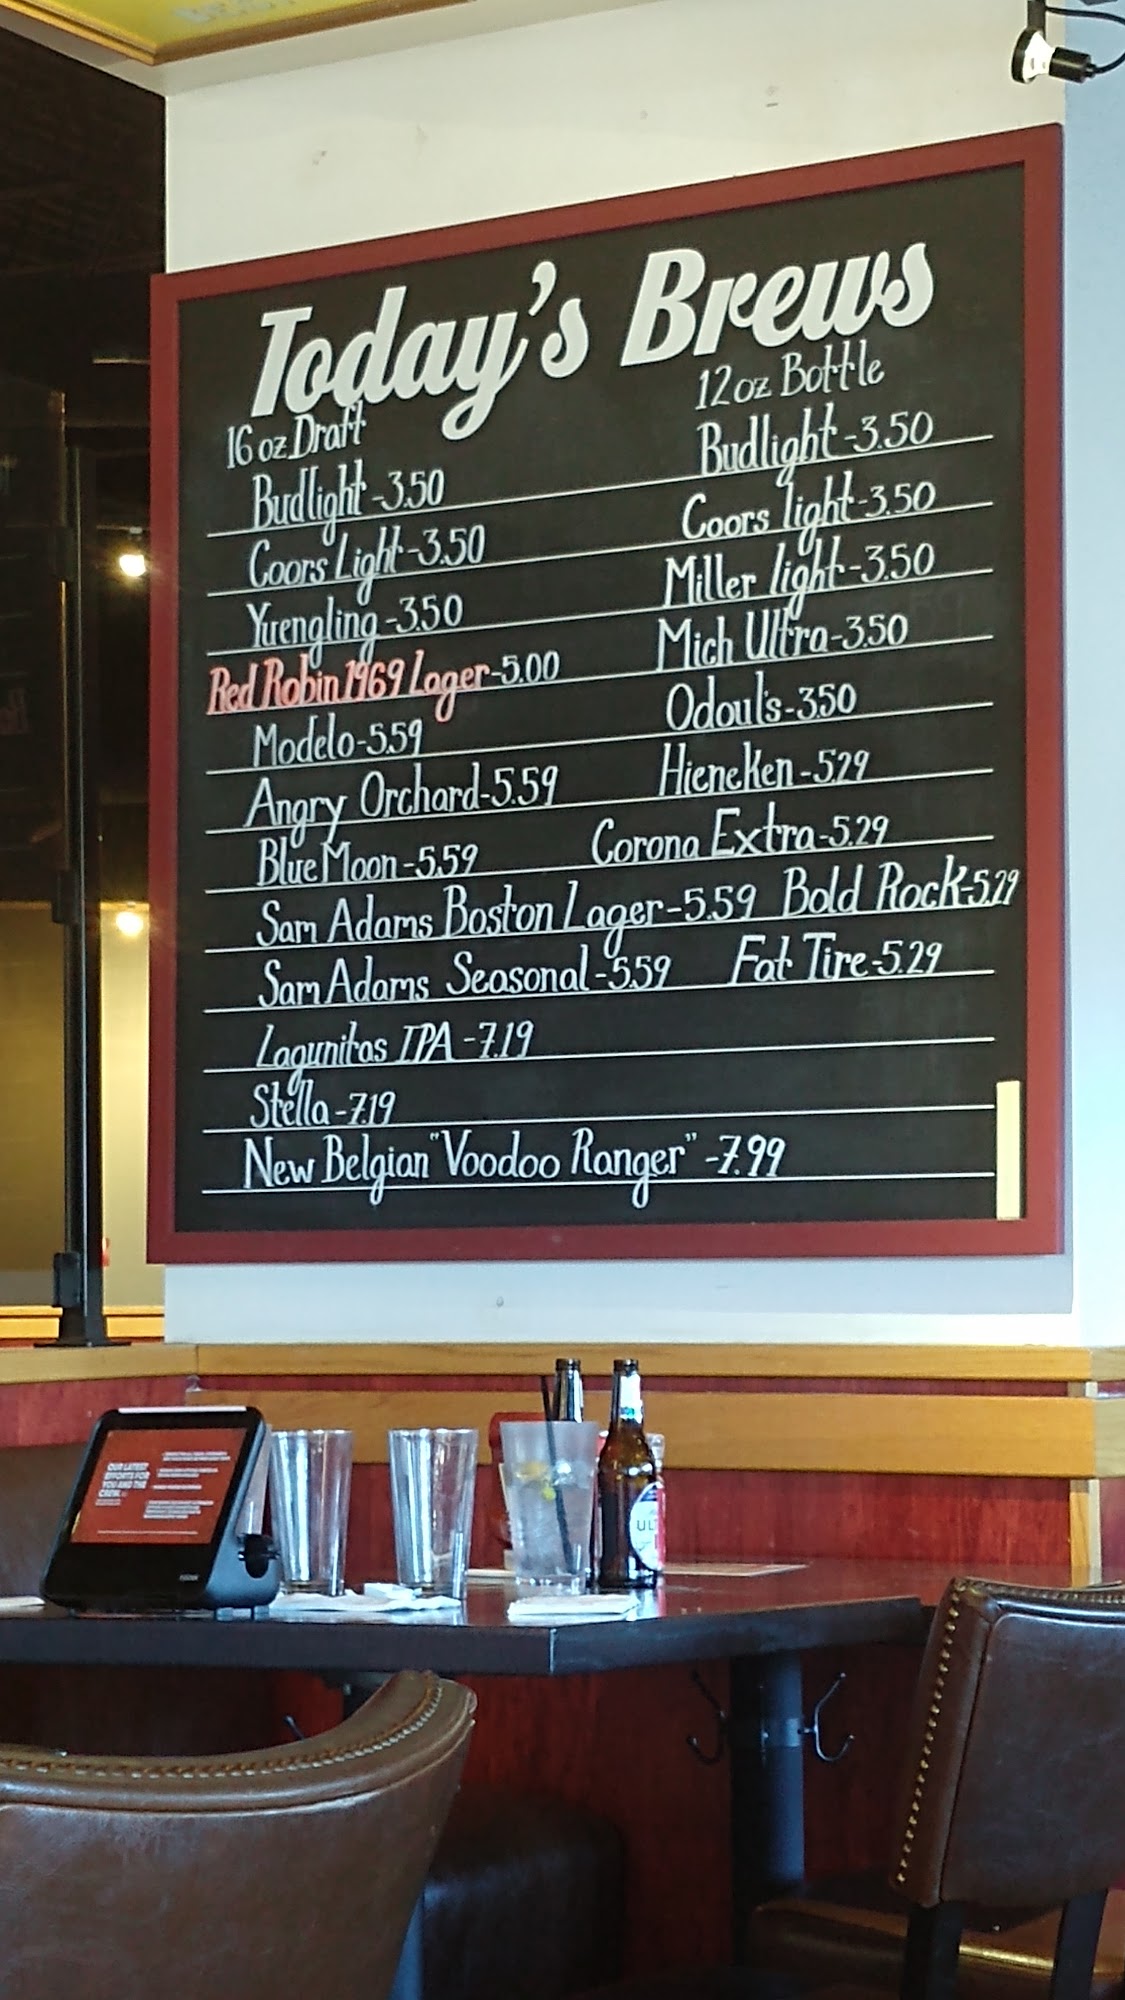 Today's Brews
16 oz Draft
Budlight -3.50
Coors Light -3.50
Yuengling -3.50
Red Robin 1969 Lager -5.00
Modelo -5.59
Angry Orchard -5.59
Blue Moon -5.59
Sam Adams Boston Lager -5.59
Sam Adams Seasonal -5.59
Lagunitas IPA -7.19
Stella -7.19
New Belgian "Voodoo Ranger" -7.99
12 oz Bottle
Budlight -3.50
Coors light -3.50
Miller light -3.50
Mich Ultra -3.50
Odoul's -3.50
Hieneken -5.29
Corona Extra -5.29
Bold Rock -5.29
Fat Tire -5.29
OUR LATEST
EFFORTS FOR
YOU AND THE
CREW.
UL